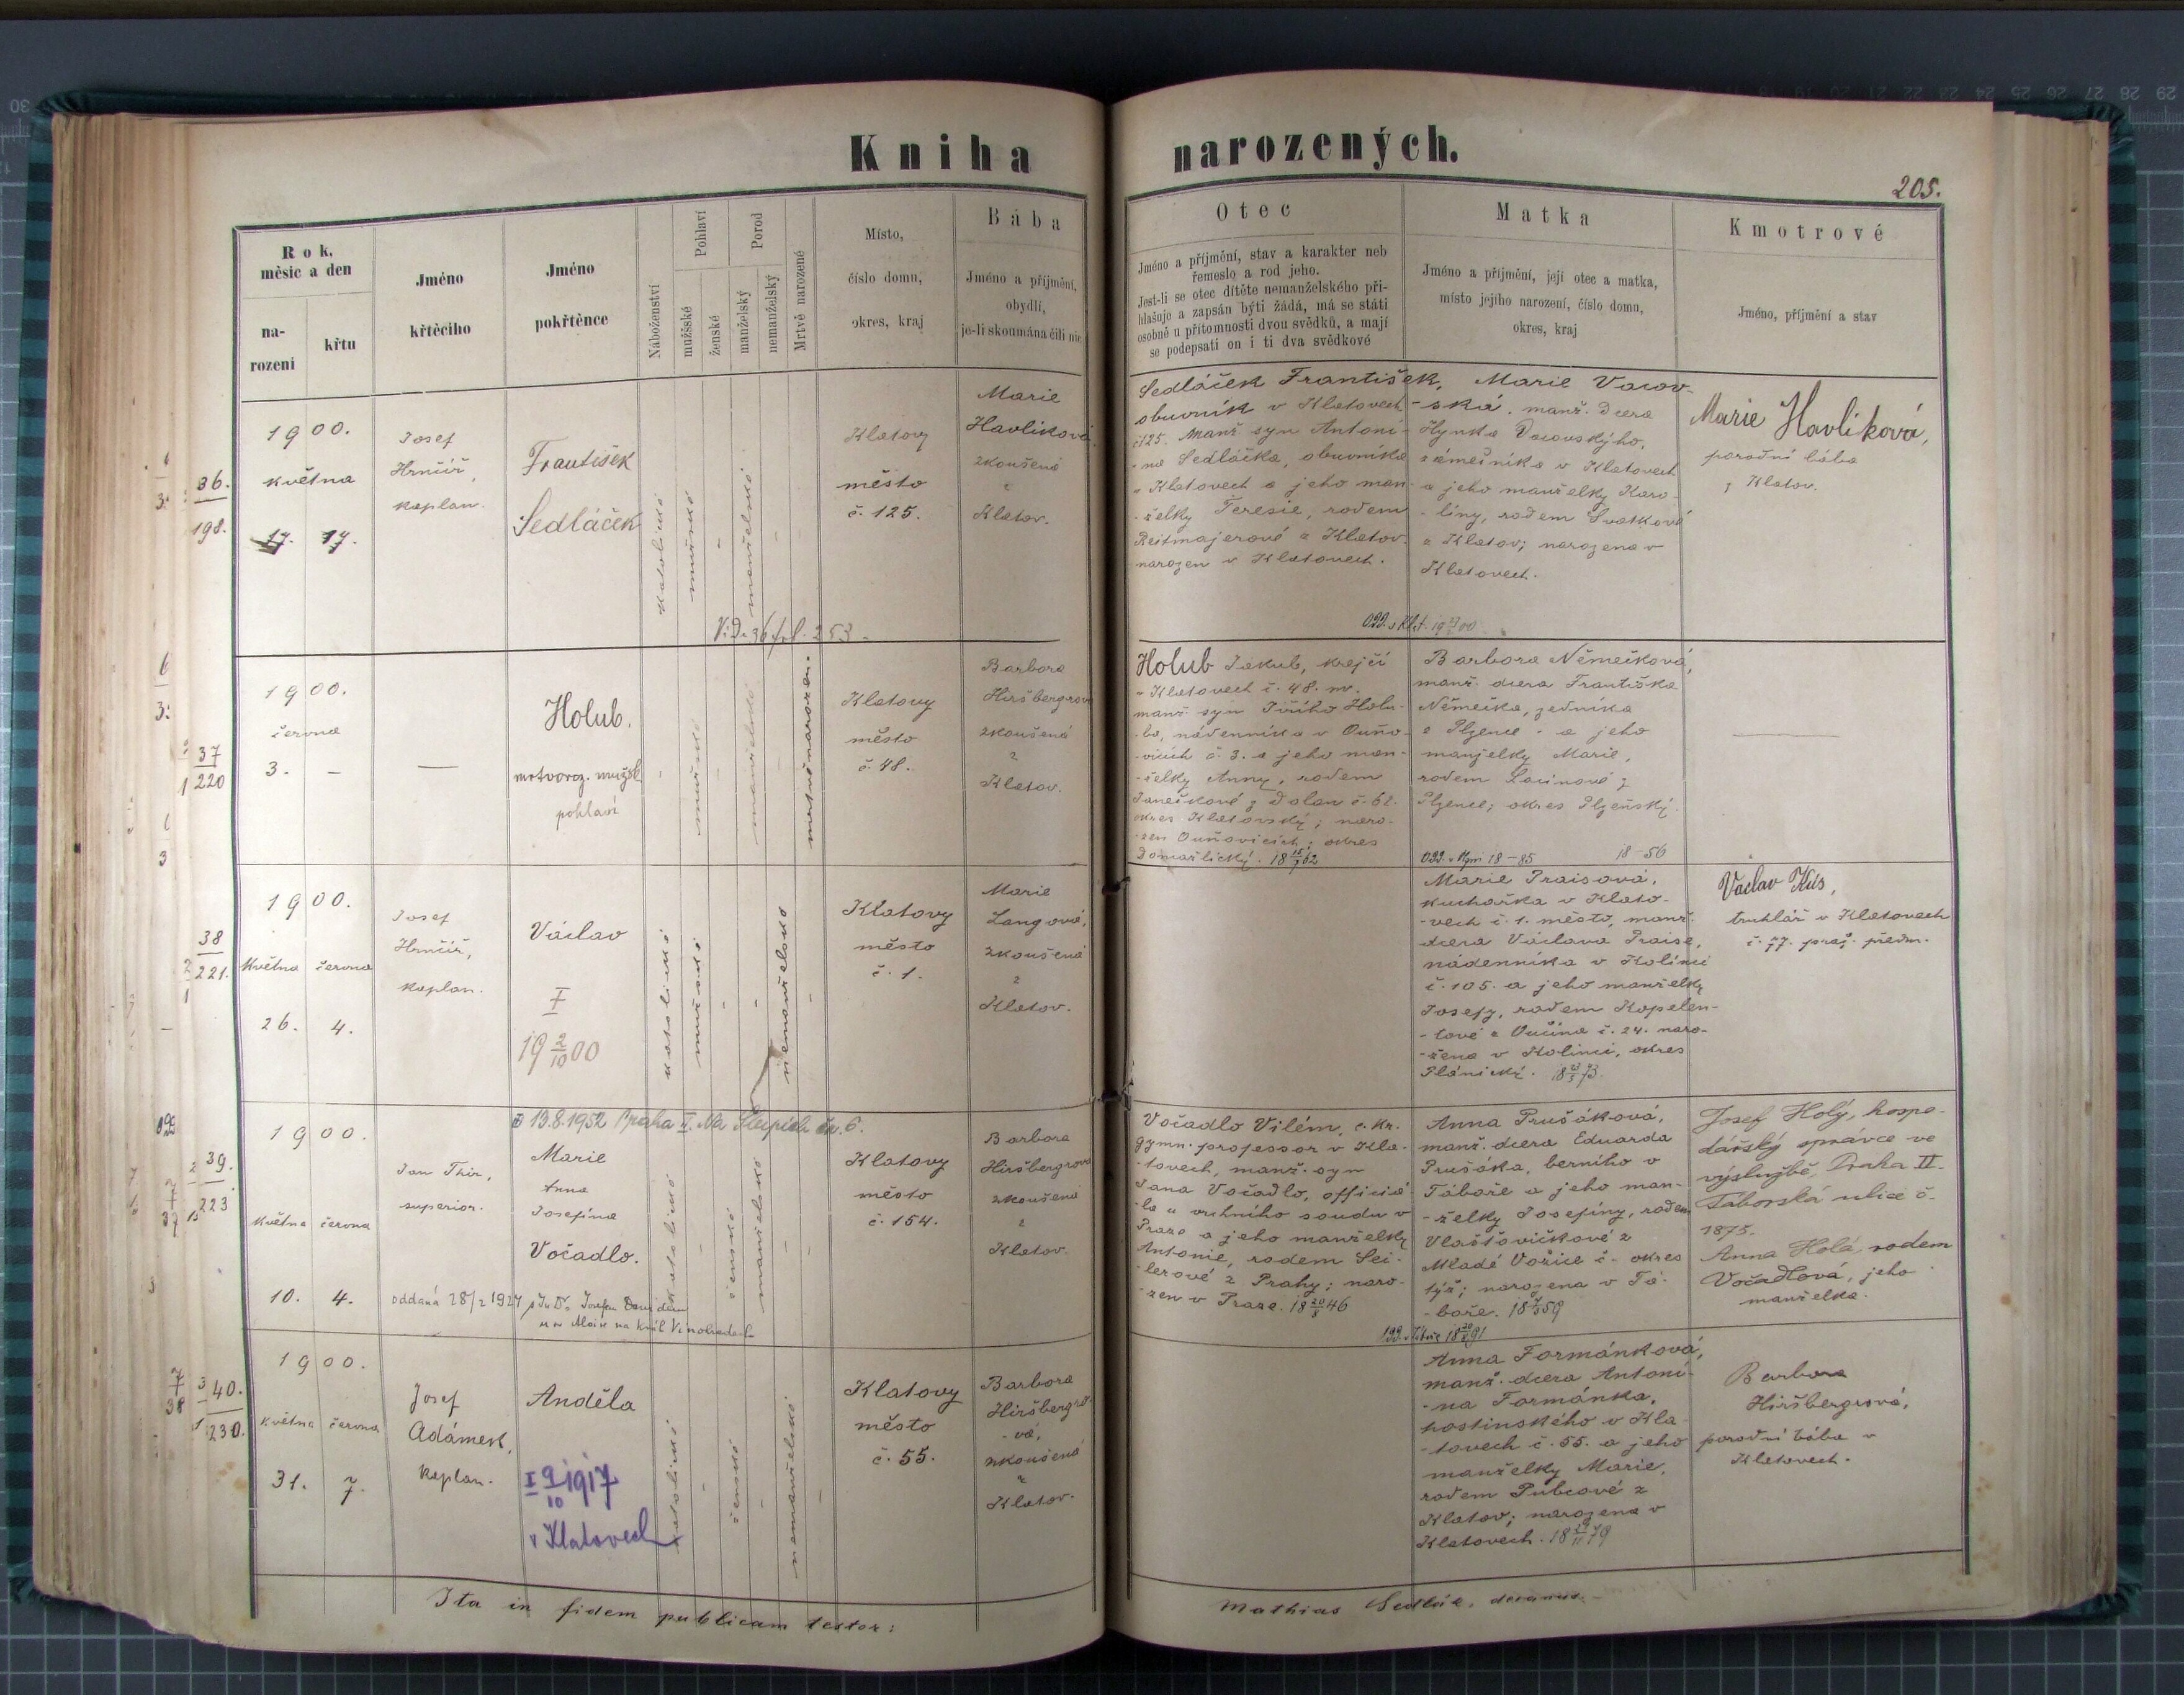 Kniha narozených.
205.
Rok, měsíc a den
na-
rození
křtu
Jméno
křtícího
Jméno
pokřtěnce
Náboženství
Pohlaví
mužšké
ženské
Porod
manželský
nemanželský
Mrtvě narozené
Místo,
číslo domu,
okres, kraj
Bába
Jméno a příjmění,
obydlí,
je-li zkoumána čili nic
Otec
Jméno a příjmění, stav a karakter neb
řemeslo a rod jeho.
Jest-li se otec dítěte nemanželského při-
hlašuje a zapsán býti žádá, má se státi
osobně u přítomnosti dvou svědků, a mají
se podepsati on i ti dva svědkové
Matka
Jméno a příjmění, její otec a matka,
místo jejího narození, číslo domu,
okres, kraj
Kmotrové
Jméno, příjmění a stav
36.
198.
1900.
května
17. 17.
Josef
Hrnčíř,
kaplan.
František
Sedláček
katolické
mužské
manželské
Klatovy
město
č. 125.
Marie
Havlíková
zkoušená
z
Klatov.
Sedláček František,
obuvník v Klatovech
č125. Manž. syn Antoní-
-na Sedláčka, obuvníka
v Klatovech a jeho man-
-želky Terezie, rodem
Reitmajerové z Klatov.
narozen v Klatovech.
Marie Vacov-
-ská, manž. dcera
Hynka Vacovského,
řemeslníka v Klatovech
a jeho manželky Karo-
-líny, rodem Svatkové
z Klatov; narozena v
Klatovech.
Marie Havlíková,
porodní bába
z Klatov.
37
220
1900.
června
3. -
Holub.
mrtvoroz. mužsk
pohlaví
mužské
manželské
mrtvě narozen.
Klatovy
město
č. 48.
Barbora
Hiršbergrová
zkoušená
z
Klatov.
Holub Jakub, krejčí
v Klatovech č. 48. m.
manž. syn Jiřího Holu-
-ba, nádenníka v Ouňo-
-vicích č. 3. a jeho man-
-želky Anny, rodem
Janečkové z Dolan č. 62.
okres Klatovský; naro-
-zen Ouňovicích; okres
Domažlický.
Barbora Němečková,
manž. dcera Františka
Němečka, zedníka
z Plzence - a jeho
manželky Marie,
rodem Lacinové z
Plzence; okres Plzeňský.
38
221.
1900.
května června
26. 4.
Josef
Hrnčíř,
kaplan.
Václav
I
19 2/10 00
katolické
mužské
nemanželské
Klatovy
město
č. 1.
Marie
Langová,
zkoušená
z
Klatov.
Marie Praisová,
kuchařka v Klato-
-vech č. 1. město, manž.
dcera Václava Praise,
nádenníka v Kolinci
č. 105. a jeho manželky
Josefy, rodem Kopelen-
-tové z Oučína č. 24. naro-
-zena v Kolinci, okres
Plánický.
Václav Kůs,
truhlář v Klatovech
č. 77. praž. předm.
13.8.1952 Praha II. Na Slupi
39.
223
1900.
května června
10. 4.
Jan Thir,
superior.
Marie
Anna
Josefína
Vočadlo.
oddaná 28/2 1927
katolické
ženské
manželské
Klatovy
město
č. 154.
Barbora
Hiršbergrová
zkoušená
z
Klatov.
Vočadlo Vilém, c. kr.
gymn. professor v Kla-
-tovech, manž. syn
Jana Vočadlo, officiá-
-la u vrchního soudu v
Praze a jeho manželky
Antonie, rodem Sei-
-lerové z Prahy; naro-
-zen v Praze. 18 20/8 46
Anna Prušáková,
manž. dcera Eduarda
Prušáka, berního v
Táboře a jeho man-
-želky Josefíny, rodem
Vlaštovičkové z
Mladé Vožice č- okres
týž; narozena v Tá-
-boře.
Josef Holý, hospo-
dářský správce ve
výslužbě, Praha II.
Táborská ulice č.
1875.
Anna Holá, rodem
Vočadlová, jeho
manželka.
40.
230.
1900.
května června
31. 7.
Josef
Adámek,
kaplan.
Anděla
I 9/10 1917
v Klatovech
katolické
ženské
nemanželské
Klatovy
město
č. 55.
Barbora
Hiršbergro-
-vá,
zkoušená
z
Klatov.
Anna Formánková,
manž. dcera Antoní-
-na Formánka,
hostinského v Kla-
-tovech č. 55. a jeho
manželky Marie,
rodem Pubcové z
Klatov; narozena v
Klatovech.
Barbora
Hiršbergrová,
porodní bába v
Klatovech.
Ita in fidem publicam testor:
Mathias Sedlák, decanus.